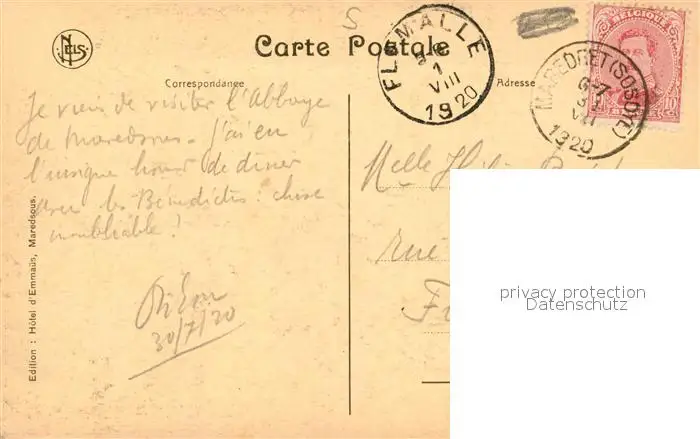 S
NELS
Carte Postale
FLÉMALLE
1
VIII
1920
BELGIQUE
10
MAREDRET (SOSOYE)
6-7
31
VII
1920
Correspondance
Adresse
Je viens de visiter l'Abbaye
de Maredsous - j'ai eu
l'insigne honneur de dîner
avec les Bénédictins : chose
inoubliable !
30/7/20
Melle
rue
Edition : Hôtel d'Emmaüs, Maredsous.
privacy protection
Datenschutz